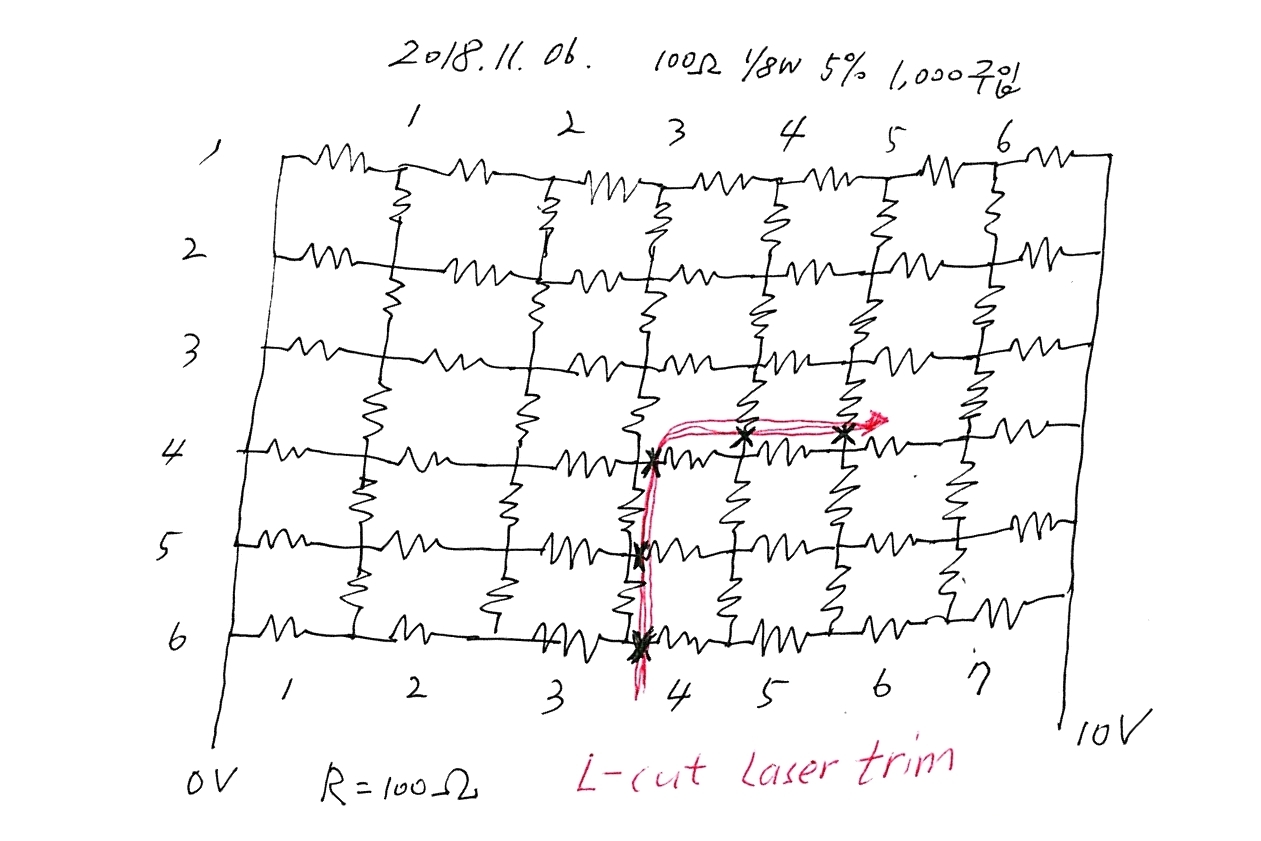 2018.11.06. 100Ω 1/8W 5% 1,000구입
1 2 3 4 5 6
1
2
3
4
5
6
1 2 3 4 5 6 7
0V R=100Ω L-cut Laser trim 10V